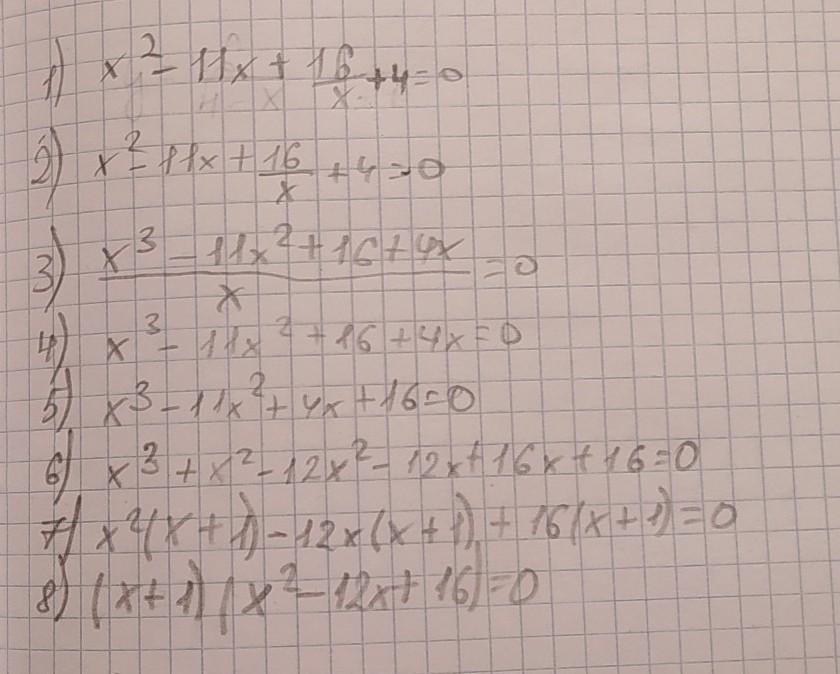 1) x² - 11x + 16/x + 4 = 0
2) x² - 11x + 16/x + 4 = 0
3) (x³ - 11x² + 16 + 4x)/x = 0
4) x³ - 11x² + 16 + 4x = 0
5) x³ - 11x² + 4x + 16 = 0
6) x³ + x² - 12x² - 12x + 16x + 16 = 0
7) x²(x + 1) - 12x(x + 1) + 16(x + 1) = 0
8) (x + 1)(x² - 12x + 16) = 0